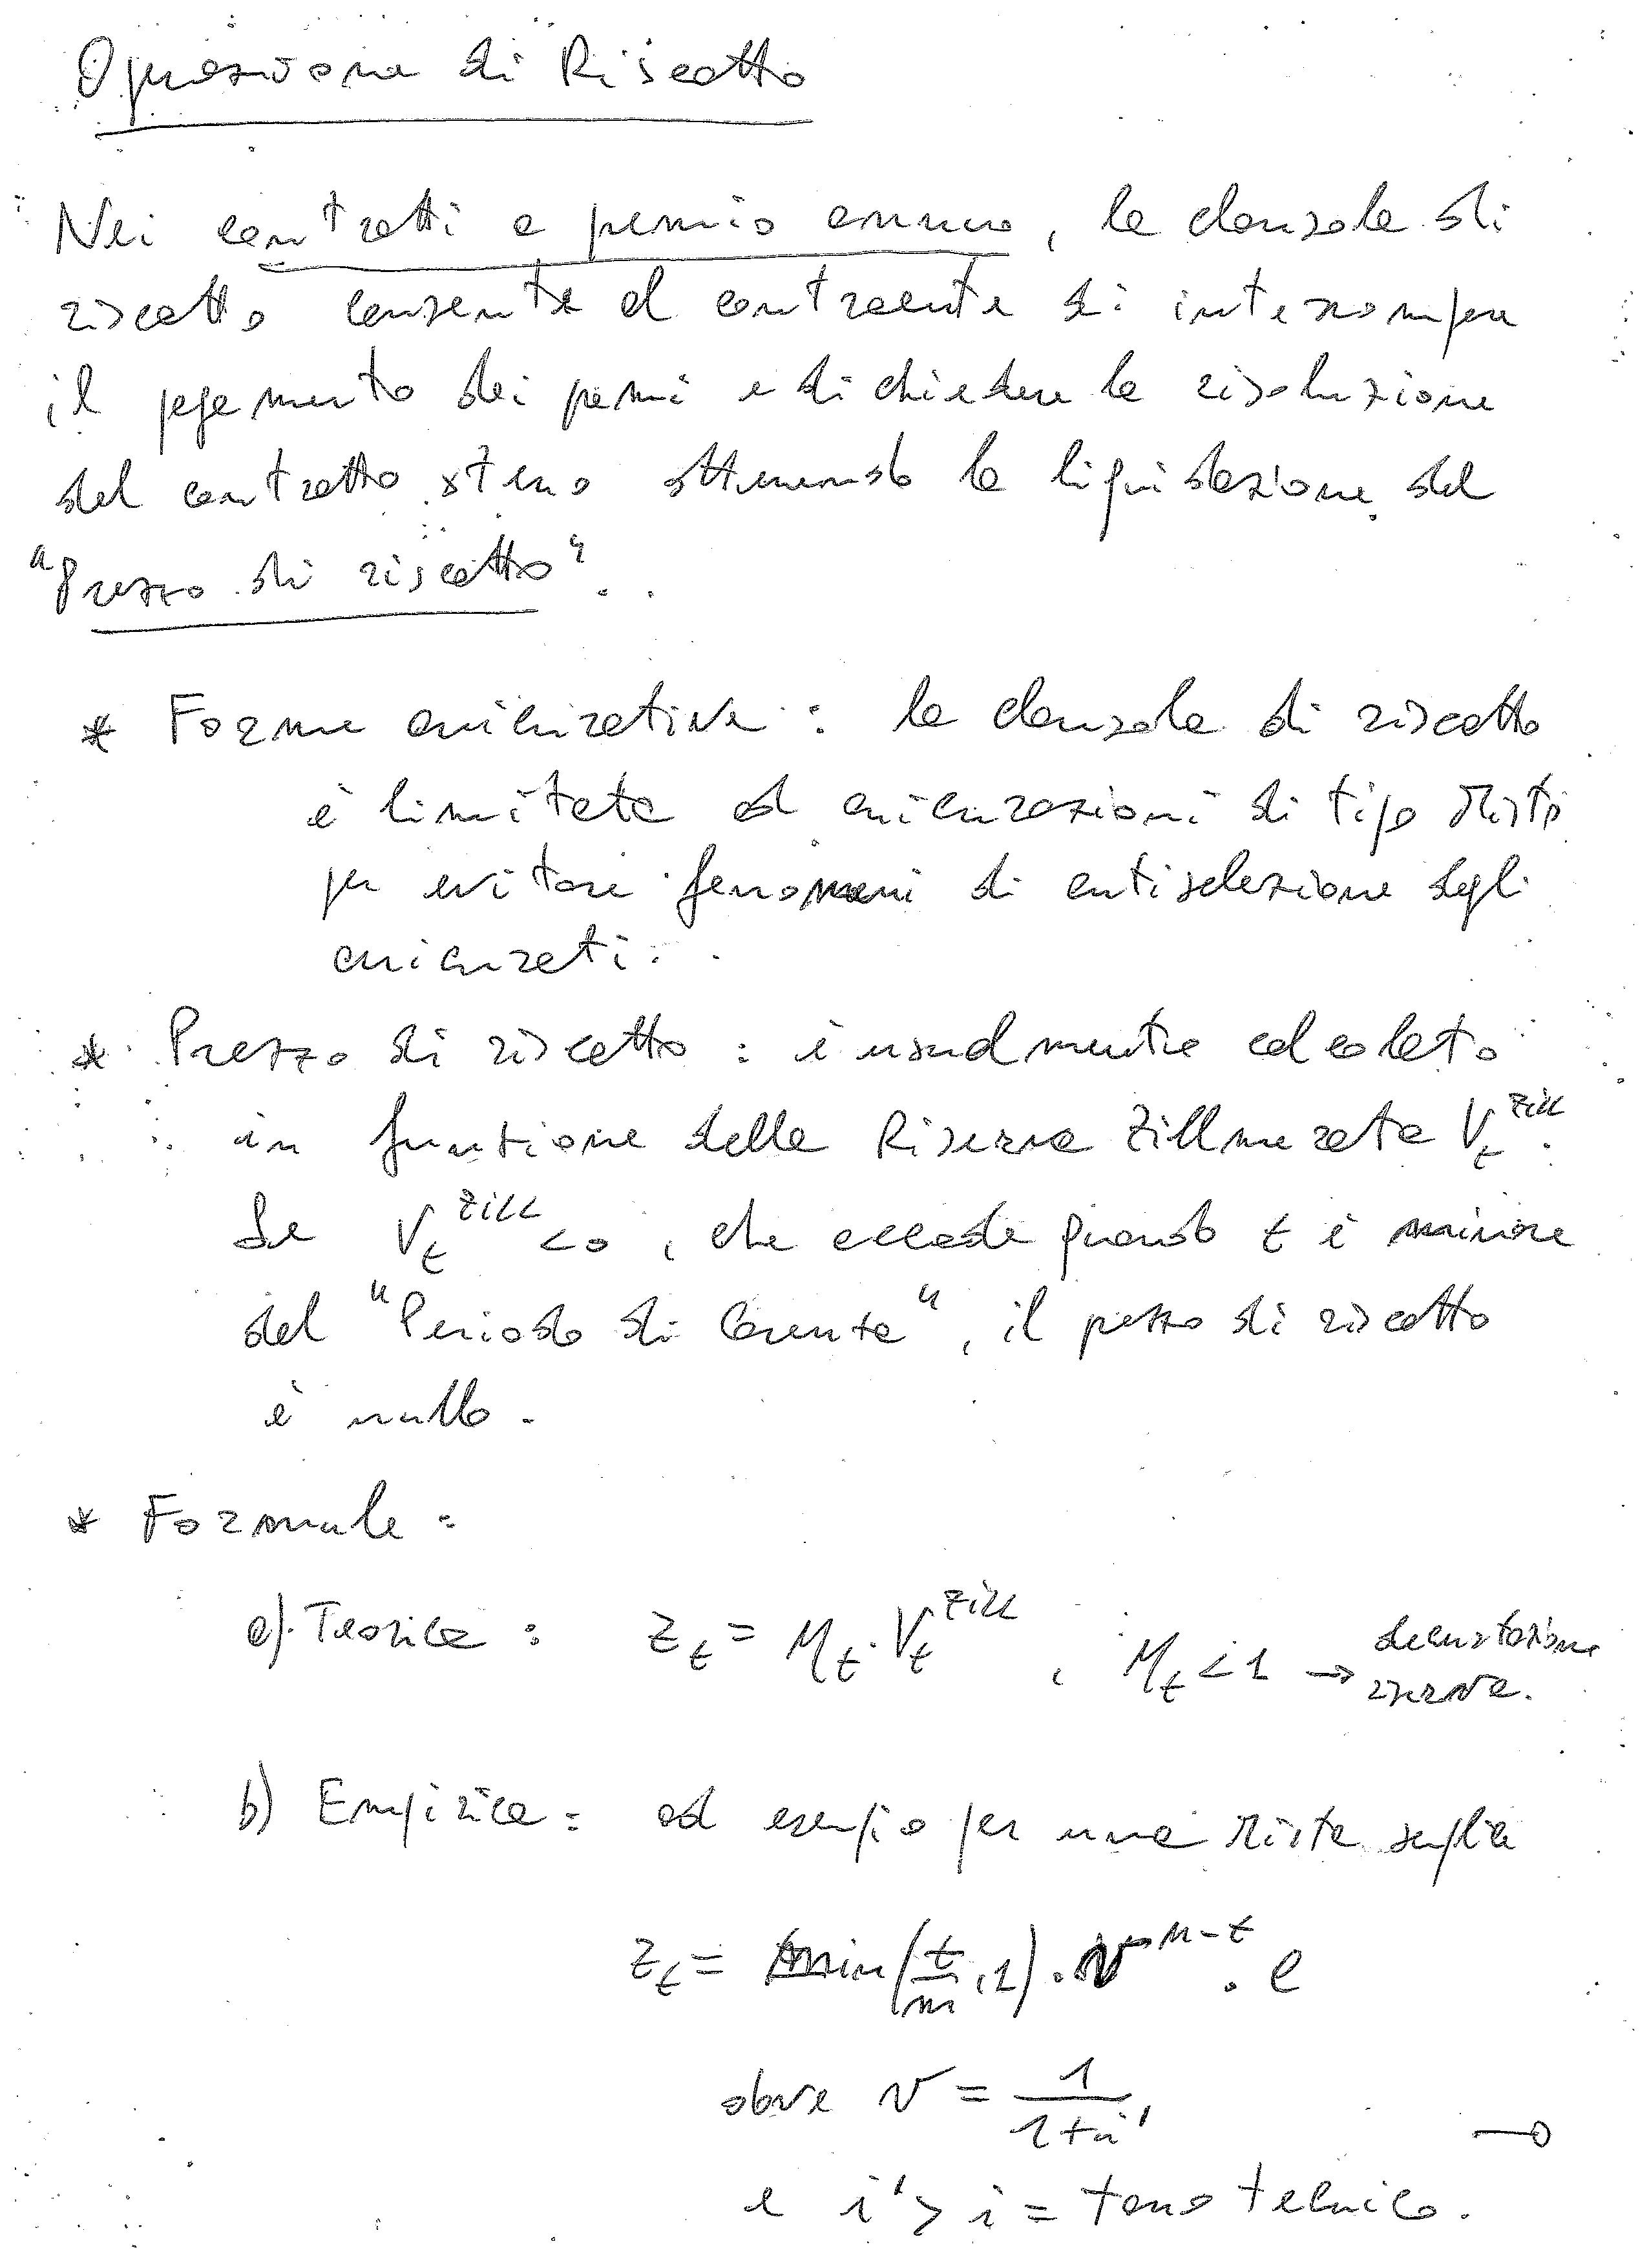 Operazione di Riscatto
Nei contratti a premio annuo, la clausola di
riscatto consente al contraente di interrompere
il pagamento dei premi e di chiedere la risoluzione
del contratto stesso ottenendo la liquidazione del
"Prezzo di riscatto".
* Forme assicurative: la clausola di riscatto
è limitata ad assicurazioni di tipo Misto
per evitare fenomeni di antiselezione degli
assicurati.
* Prezzo di riscatto: è usualmente calcolato
in funzione della Riserva Zillmerata V_t^{Zill}.
Se V_t^{Zill} < 0, che accade quando t è minore
del "Periodo di Carenza", il prezzo di riscatto
è nullo.
* Formule:
a) Teorica: Z_t = M_t · V_t^{Zill}, M_t < 1 → decurtazione
riserva.
b) Empirica: ad esempio per una Mista semplice
Z_t = min(t/m, 1) · v^{n-t} · C
dove v = 1/(1+i')
e i' > i = tasso tecnico.